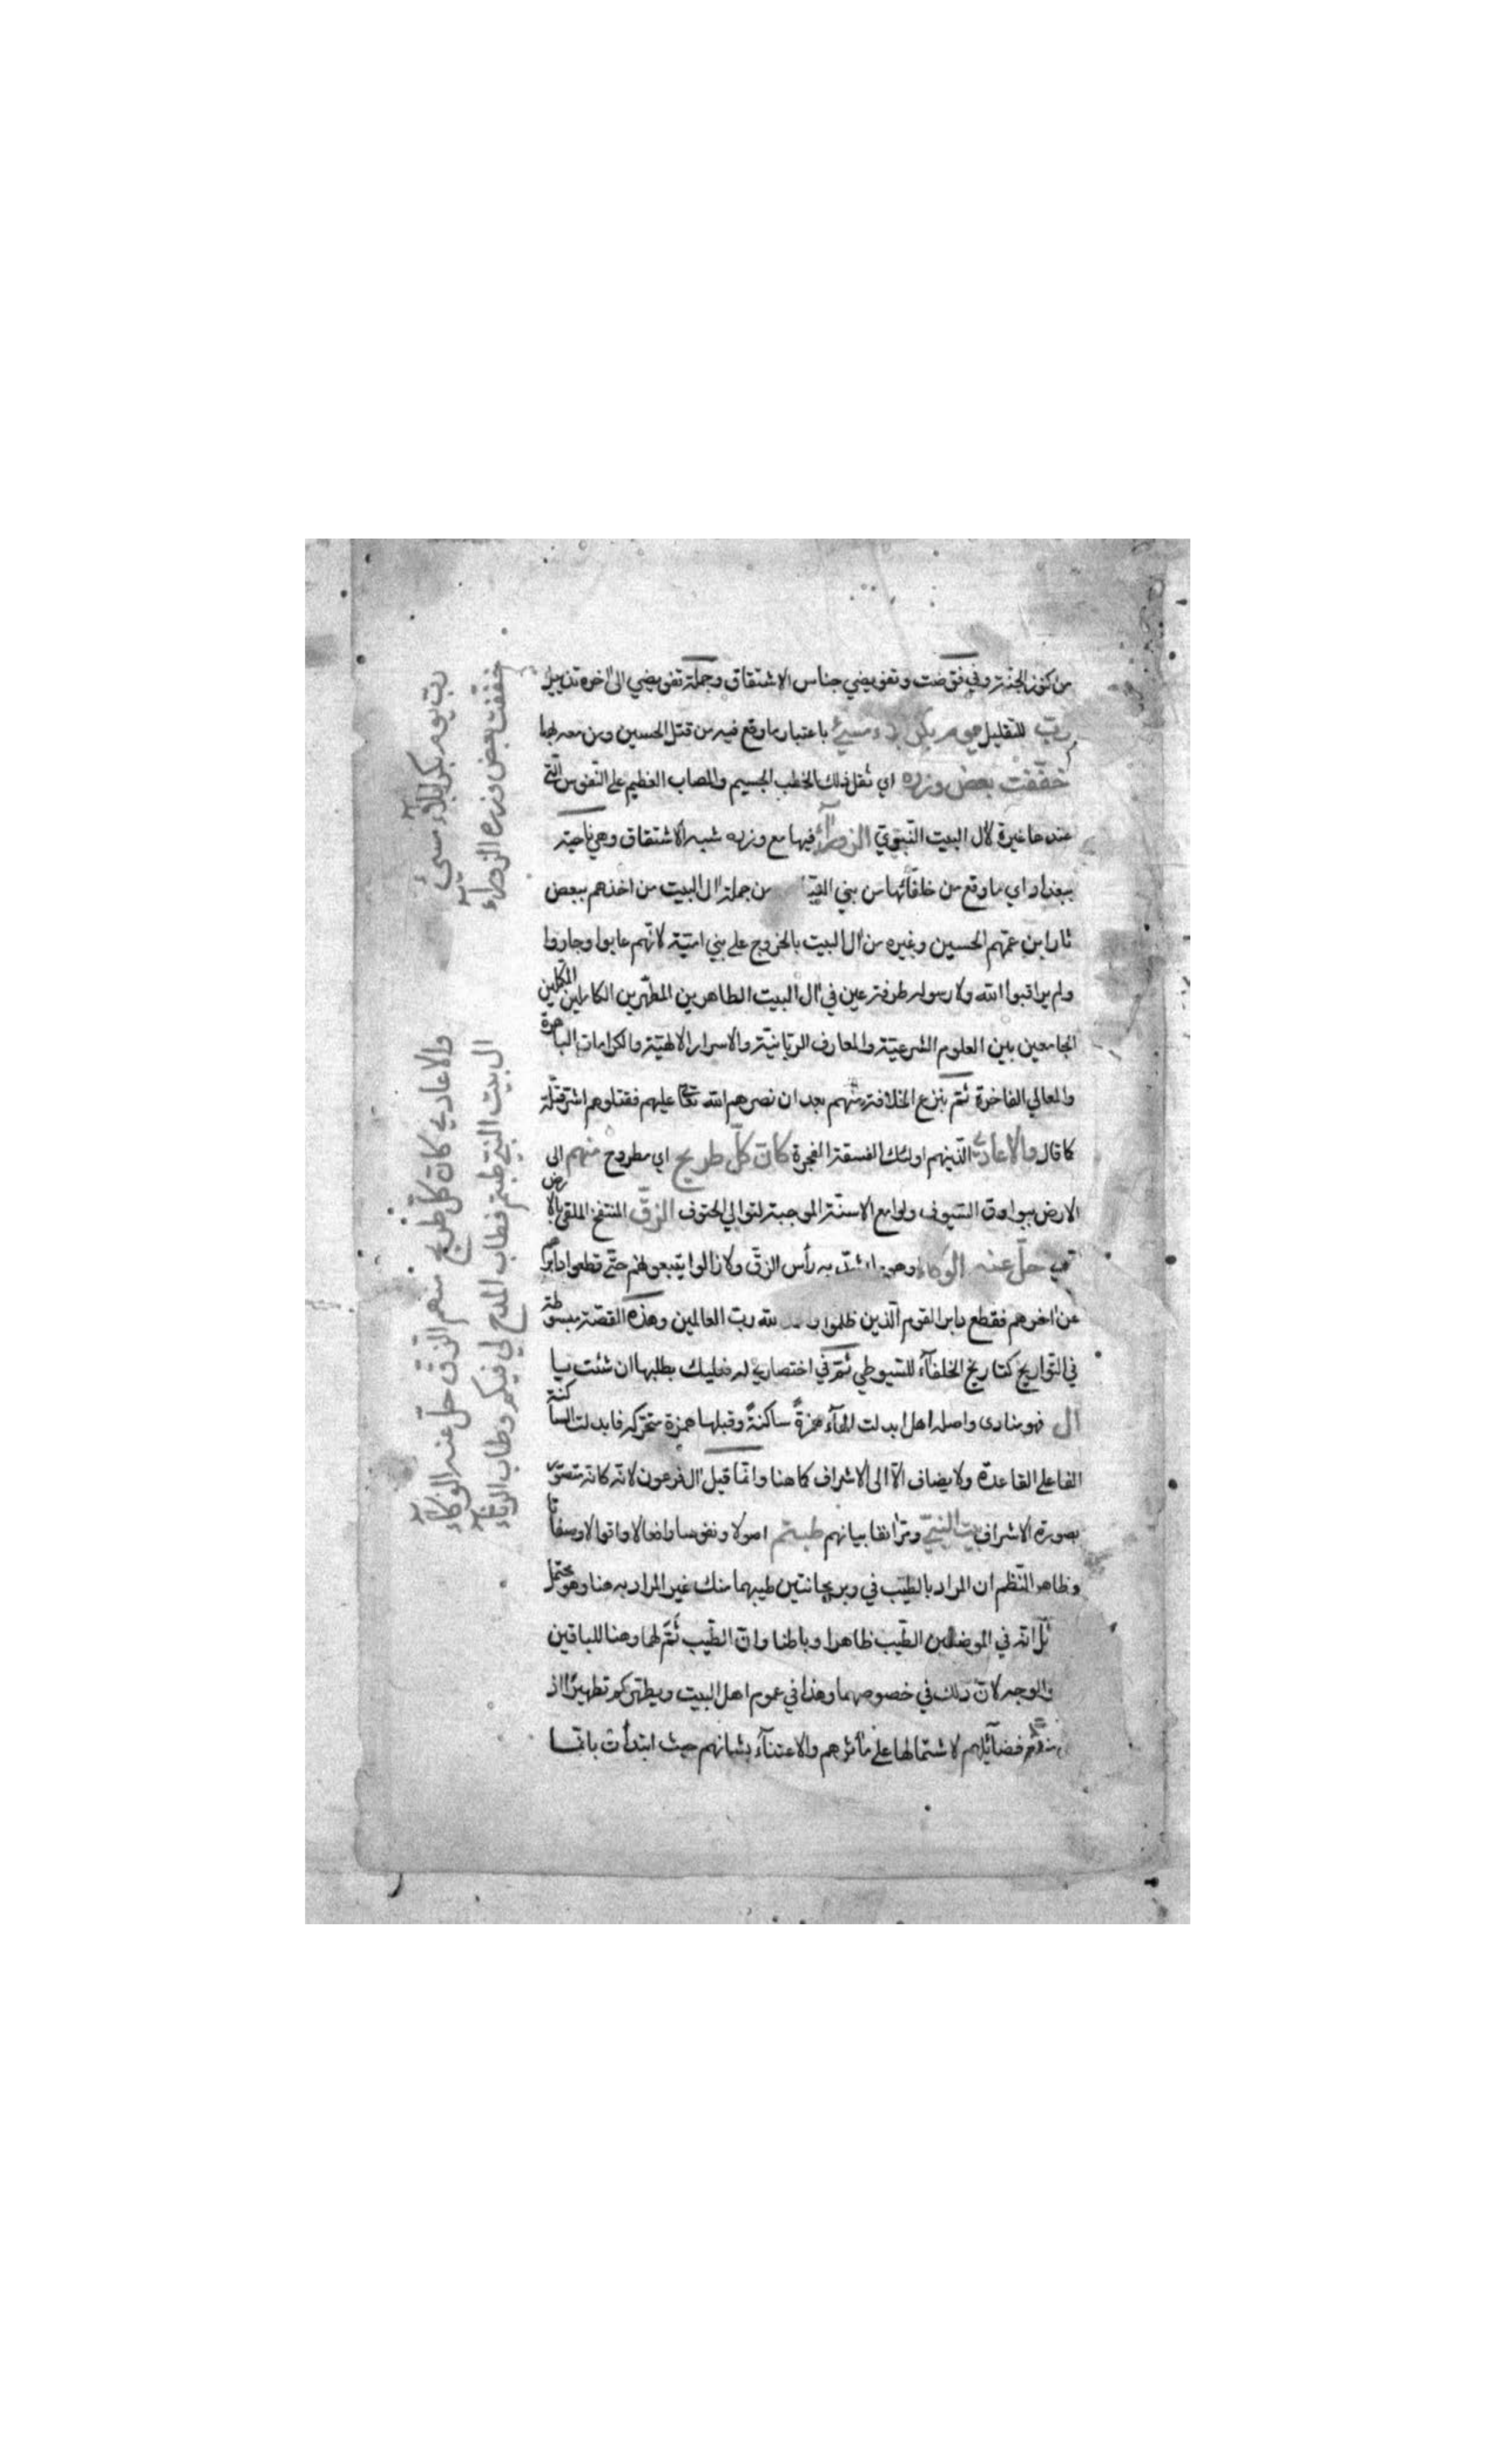 من كنوز الجنة وفي فوّضت وتفويضي جناس الاشتقاق وجملة تفويضي الى اخره تذييل
ربّ للتقليل يوم بكربلاء مسيءٌ باعتبار ما وقع فيه من قتل الحسين ومن معه لها
خفّفت بعض وزره اي ثقل ذلك الخطب الجسيم والمصاب العظيم على النّفوس الّتي
عندها غيرة لآل البيت النّبويّ الزورآء فيها مع وزره شبه الاشتقاق وهي ناحية
ببغداد اي ما وقع من خلفائها من بني من جملة ال البيت من اخذهم ببعض
ثار ابن عمّهم الحسين وغيره من آل البيت بالخروج على بني اميّة لانّهم عابوا وجاروا
ولم يراقبوا الله ولا رسوله طرفة عين في آل البيت الطاهرين المطهّرين الكاملين المكمّلين
الجامعين بين العلوم الشرعيّة والمعارف الربّانيّة والاسرار الالهيّة والكرامات الباهرة
والمعالي الفاخرة ثمّ بنزع الخلافة منهم بعد ان نصرهم الله تعا عليهم فقتلوهم اشرّ قتلة
كما قال والاعادي الّذينهم اولئك الفسقة الفجرة كان كلّ طريح اي مطروح منهم الى
الارض ببوارق السّيوف ولوامع الاسنّة الموجبة لتوالي الحتوف الزقّ المنتفخ الملقى بالارض
حلّ عنه الوكاء وهو به رأس الزقّ ولا زالوا يتبعونهم حتّى قطعوا دابرهم
عن اخرهم فقطع دابر القوم الّذين ظلموا لله ربّ العالمين وهذه القصّة مبسوطة
في التّواريخ كتاريخ الخلفآء للسّيوطي ثمّ في اختصاري له فعليك بطلبها ان شئت يا
آل فهو منادى واصله اهل ابدلت الهآء همزةً ساكنةً وقبلها همزة متحرّكة فابدلت الساكنة
الفا على القاعدة ولا يضاف الّا الى الاشراف كما هنا وانّما قيل آل فرعون لانّه كانه متصوّر
بصورة الاشراف بيت النبيّ ومرّ انفا بيانهم طبتم اصولا ونفوسا وافعالا واقوالا وصفاتا
وظاهر النّظم ان المراد بالطّيب في وبريحانتين طيبهما منك غير المراد به هنا وهو محتمل
انّه في الموضعين الطّيب ظاهرا وباطنا وانّ الطّيب ثمّ لهما وهنا للباقين
والوجه لانّ ذلك في خصوصهما وهذا في عموم اهل البيت ويطهّركم تطهيرًا اذ
فضآئلهم لاشتمالها على مآثرهم والاعتنآء بشانهم حيث ابتدأت بانّما
ربّ يوم بكربلاء مسيءٍ
خفّفت بعض وزره الزوراء
والاعادي كان كلّ طريح منهم الزقّ حلّ عنه الوكآء
آل بيت النبيّ طبتم فطاب المدح لي فيكم وطاب الرثآء